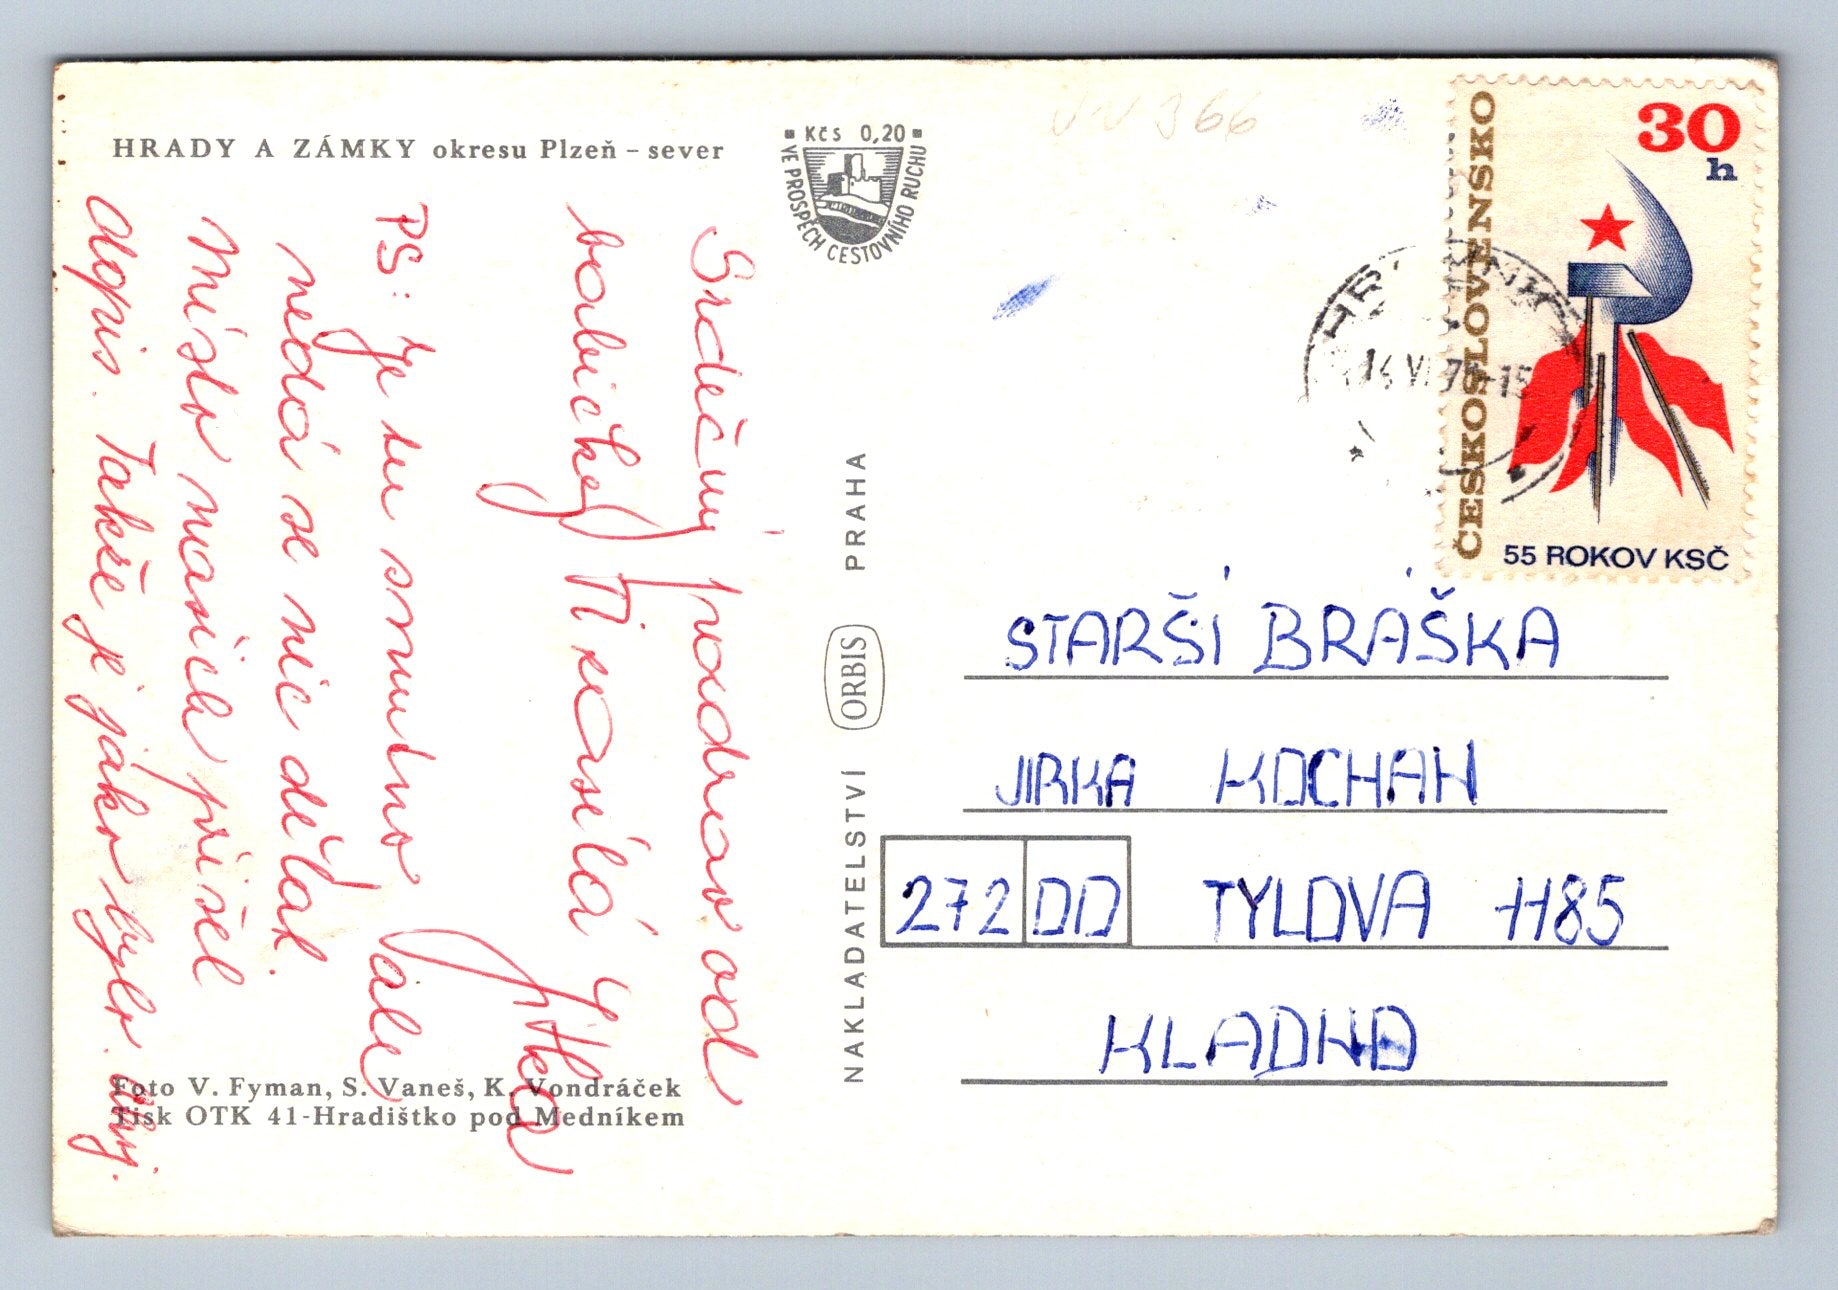 HRADY A ZÁMKY okresu Plzeň – sever
Kčs 0,20
VE PROSPĚCH CESTOVNÍHO RUCHU
Srdečný pozdrav od
babičky Ti posílá
Jitka
PS: Je tu smutno
nedá se nic dělat.
Místo našich přišel
dopis. Takže je jako bylo.
Foto V. Fyman, S. Vaneš, K. Vondráček
Tisk OTK 41-Hradištko pod Medníkem
NAKLADATELSTVÍ ORBIS PRAHA
366
ČESKOSLOVENSKO
30
h
55 ROKOV KSČ
STARŠÍ BRÁŠKA
JIRKA KOCHAN
272 00 TYLOVA H85
KLADNO